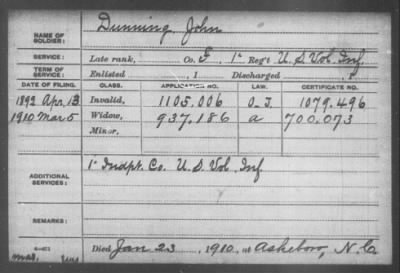 NAME OF SOLDIER: Dunning, John
SERVICE: Late rank, Co. E, 1st Reg't U. S. Vol. Inf.
TERM OF SERVICE: Enlisted , 1 Discharged , 1
DATE OF FILING. CLASS. APPLICATION NO. LAW. CERTIFICATE NO.
1892 Apr. 13 Invalid, 1105.006 O-J. 1079.496
1910 Mar 5 Widow, 937.186 a 700.073
Minor,
ADDITIONAL SERVICES: 1st Indpt. Co. U. S. Vol. Inf.
REMARKS:
Died Jan 23, 1910, at Asheboro, N. C.